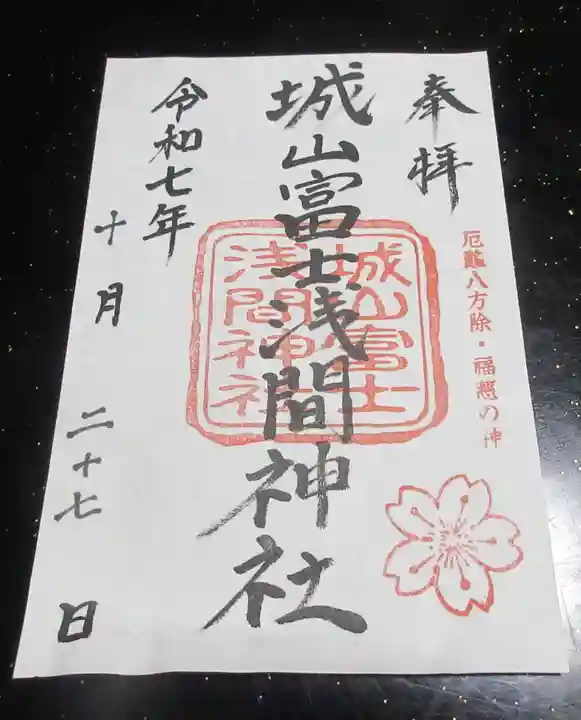 奉拝
厄難八方除・福慈の神
城山富士浅間神社
城山富士
浅間神社
令和七年
十月
二十七
日